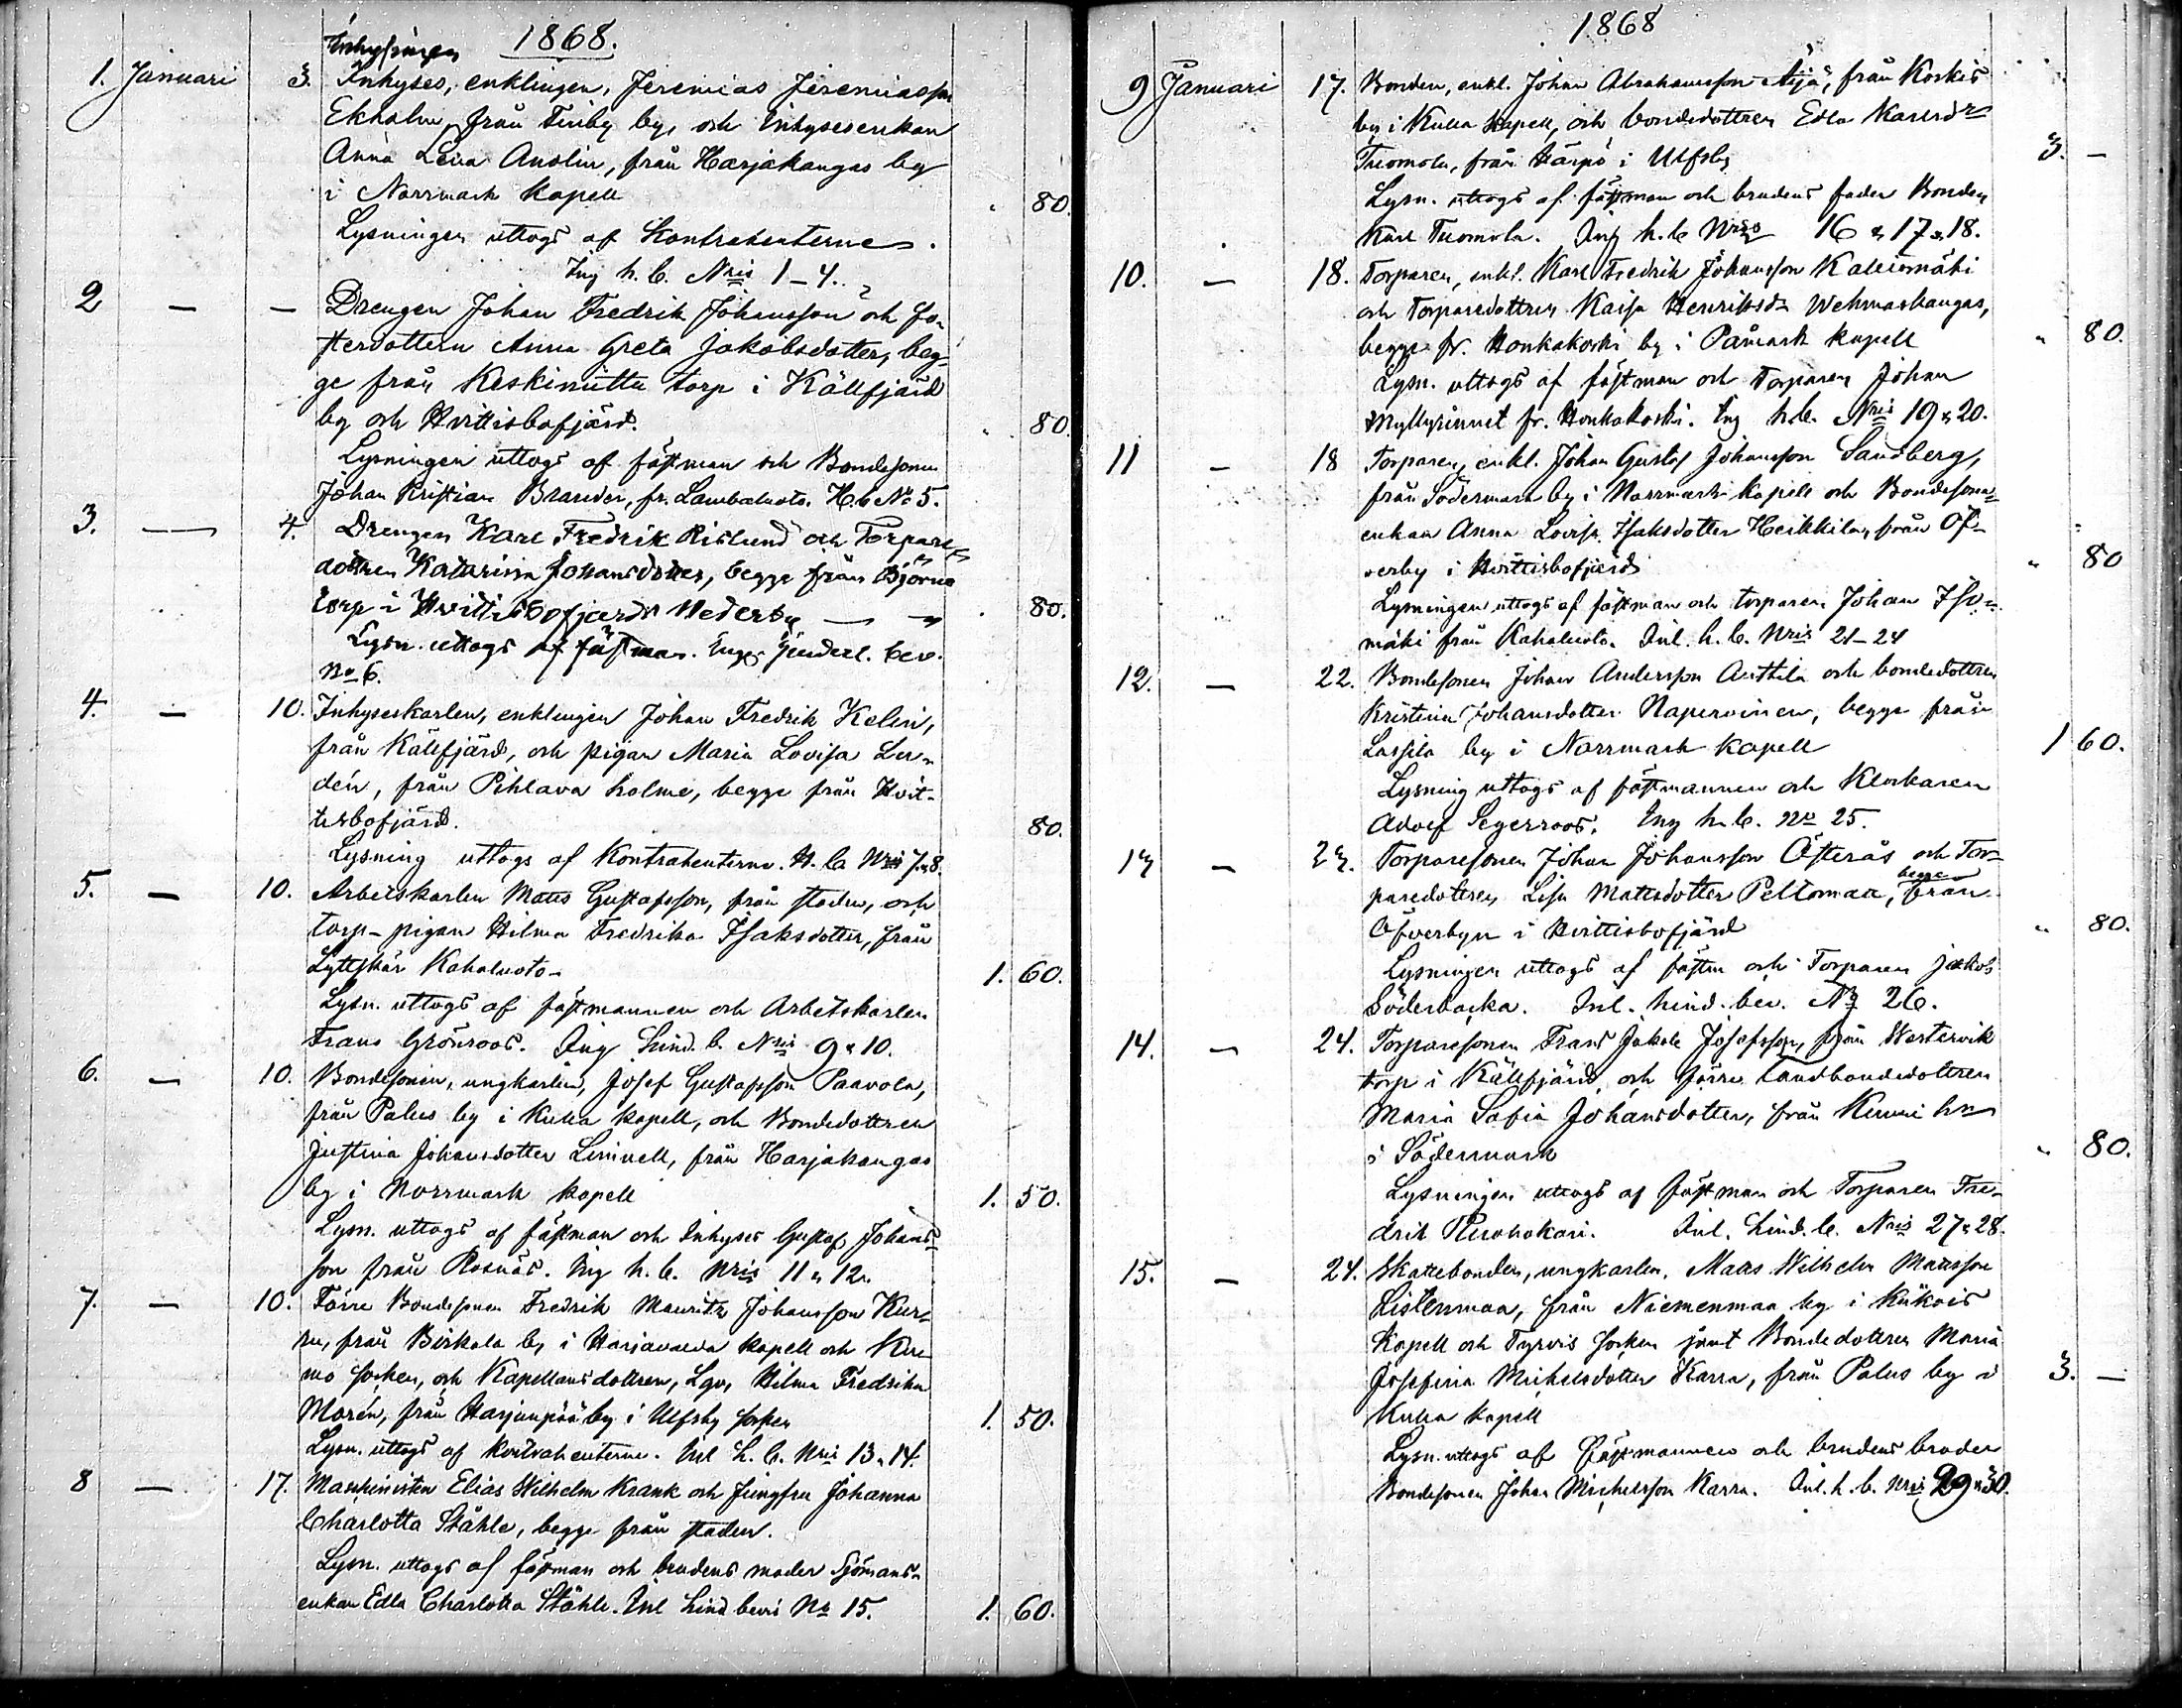 1868.
Inhyses, enklingen, Jeremias Jeremiasson
1. Januari 3. Ekholm, från Finby by, och Inhysesenkan
Anna Lena Anolin, från Harjakangas by
i Norrmark kapell 80.
Lysningen uttogs af Kontrahenterne.
Ing h. b. Nris 1-4.
2 — — Drengen Johan Fredrik Johansson och Fo-
sterdottern Anna Greta Jakobsdotter, beg-
ge från Keskinüttu torp i Källfjärd
by och Hvittisbofjärd. 80.
Lysningen uttogs af fästman och Bondesonen
Johan Kristian Brander, fr. Lambaluoto. H.b No 5.
3. — 4. Drengen Karl Fredrik Rislund och Torpare
dottren Katarina Johansdotter, begge från Björnä
torp i Hvittisbofjerds Nederby — 80.
Lysn. uttogs af fästman. Hinderl. bev.
No 6.
4. — 10. Inhyseskarlen, enklingen Johan Fredrik Kelin,
från Källfjärd, och pigan Maria Lovisa Lin-
dén, från Pihlava holme, begge från Hvit-
tisbofjärd. 80.
Lysning uttogs af Kontrahenterne. H. b. Nris 7 & 8.
5. — 10. Arbetskarlen Matts Gustafsson, från staden, och
torp-pigan Hilma Fredrika Isaksdotter, från
Lyttskär Kahaluoto. 1. 60.
Lysn. uttogs af fästmannen och Arbetskarlen
Frans Grönroos. Ing hind. b. Nris 9 & 10.
6. — 10. Bondesonen, ungkarlen, Josef Gustafsson Paavola,
från Palus by i Kulla kapell, och Bondedottren
Justina Johansdotter Linnell, från Harjakangas
by i Norrmark kapell 1. 50.
Lysn. uttogs af fästman och Inhyses Gustaf Johans-
son från Rosnäs. Ing h. b. Nris 11 & 12.
7. — 10. Förre Bondesonen Fredrik Mauritz Johansson Kur-
ru, från Birkala by i Harjavalda kapell och Kiu-
mo socken, och Kapellansdottren, Hilma Fredrika
Morén, från Harjunpää by i Ulfsby socken 1. 50.
Lysn. uttogs af kontrahenterne. Inl h. b. Nris 13 & 14.
8 — 17. Maskinisten Elias Wilhelm Krank och Jungfru Johanna
Charlotta Ståhle, begge från staden.
Lysn. uttogs af fästman och brudens moder Sjömans-
enkan Edla Charlotta Ståhle. Inl hind bevis No 15. 1. 60.
1868
9 Januari 17. Bonden, enkl. Johan Abrahamsson Äijä, från Koskis
by i Kulla kapell, och bondedottren Edla Karlsdr
Tuomola, från Härpö i Ulfsby 3. —
Lysn. uttogs af fästman och brudens fader Bonden
Karl Tuomola. Ing h. b Nris 16 & 17 & 18.
10. — 18. Torparen, enkl. Karl Fredrik Johansson Kalliomäki
och Torparedottren Kaisa Henriksdr Wehmaskangas,
begge fr. Honkakoski by i Påmark kapell 80.
Lysn. uttogs af fästman och Torparen Johan
Myllyrinnet fr. Honkakoski. Ing h.b. Nris 19 & 20.
11 — 18 Torparen, enkl. Johan Gustaf Johansson Sandberg,
från Södermark by i Norrmark kapell och Bondesons-
enkan Anna Lovisa Isaksdotter Heikkilä, från Öf-
verby i Hvittisbofjärd 80
Lysningen uttogs af fästman och torparen Johan Iso-
mäki från Kahaluoto. Inl. h. b. Nris 21-24
12. — 22. Bondesonen Johan Andersson Anttila och bondedottren
Kristina Johansdotter Napervinen, begge från
Lassila by i Norrmark kapell 1 60.
Lysning uttogs af fästmannen och Klockaren
Adolf Segerroos. Ing h. b. No 25.
13 — 23. Torparesonen Johan Johansson Österås och Tor-
paredottren Lisa Mattsdotter Peltomaa, begge från
Öfverbyn i Hvittisbofjärd 80.
Lysningen uttogs af fästm och Torparen Jakob
Söderbacka. Inl. hind. bev. No 26.
14. — 24. Torparesonen Frans Jakob Josefsson, från Westervik
torp i Källfjärd, och förre Landbondedottren
Maria Sofia Johansdotter, från Kuuri hn
i Södermark 80.
Lysningen uttogs af fästman och Torparen Fre-
drik Ruohokari. Inl. hind. b. Nris 27 & 28.
15. — 24. Skattebonden, ungkarlen, Matts Wilhelm Mattsson
Listenmaa, från Niemenmaa by i Kiikois
Kapell och Tyrvis socken jemt Bondedottren Maria
Josefina Michelsdotter Karra, från Palus by i 3. —
Kulla kapell
Lysn. uttogs af fästmannen och brudens broder
Bondesonen Johan Michelsson Karra. Inl. h. b. Nris 29 & 30.